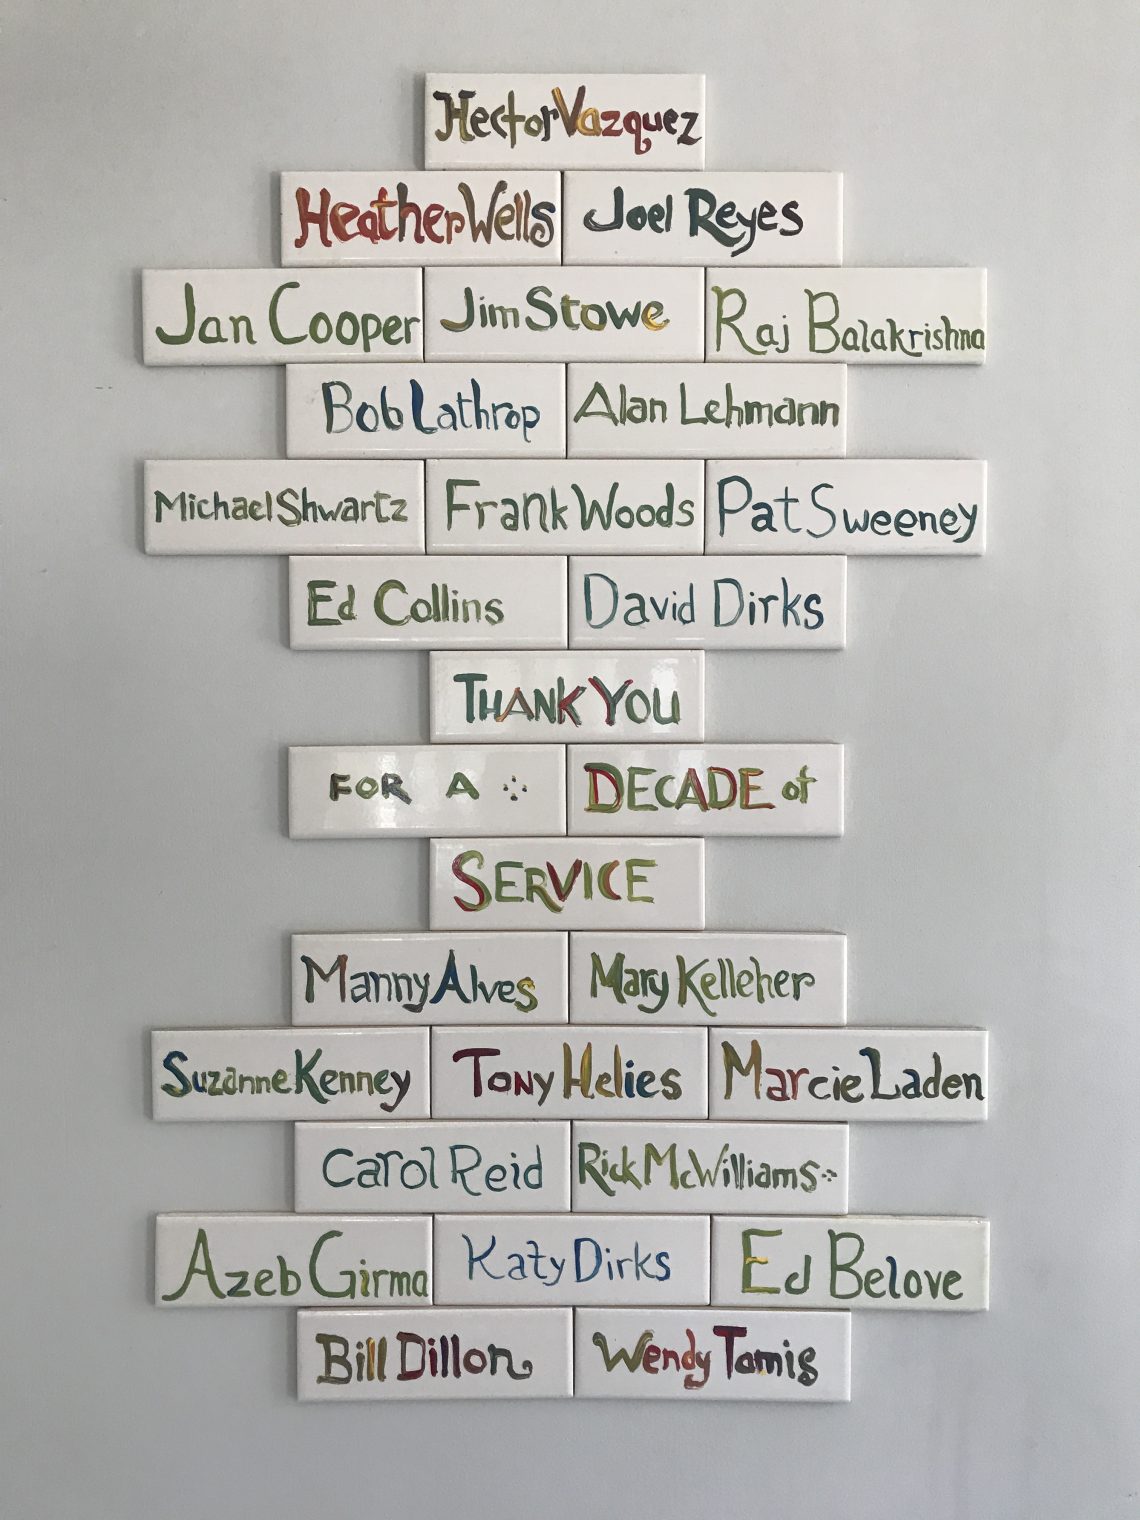 Hector Vazquez
Heather Wells Joel Reyes
Jan Cooper Jim Stowe Raj Balakrishna
Bob Lathrop Alan Lehmann
Michael Shwartz Frank Woods Pat Sweeney
Ed Collins David Dirks
THANK YOU
FOR A DECADE of
SERVICE
Manny Alves Mary Kelleher
Suzanne Kenney Tony Helies Marcie Laden
Carol Reid Rick McWilliams
Azeb Girma Katy Dirks Ed Belove
Bill Dillon Wendy Tamis